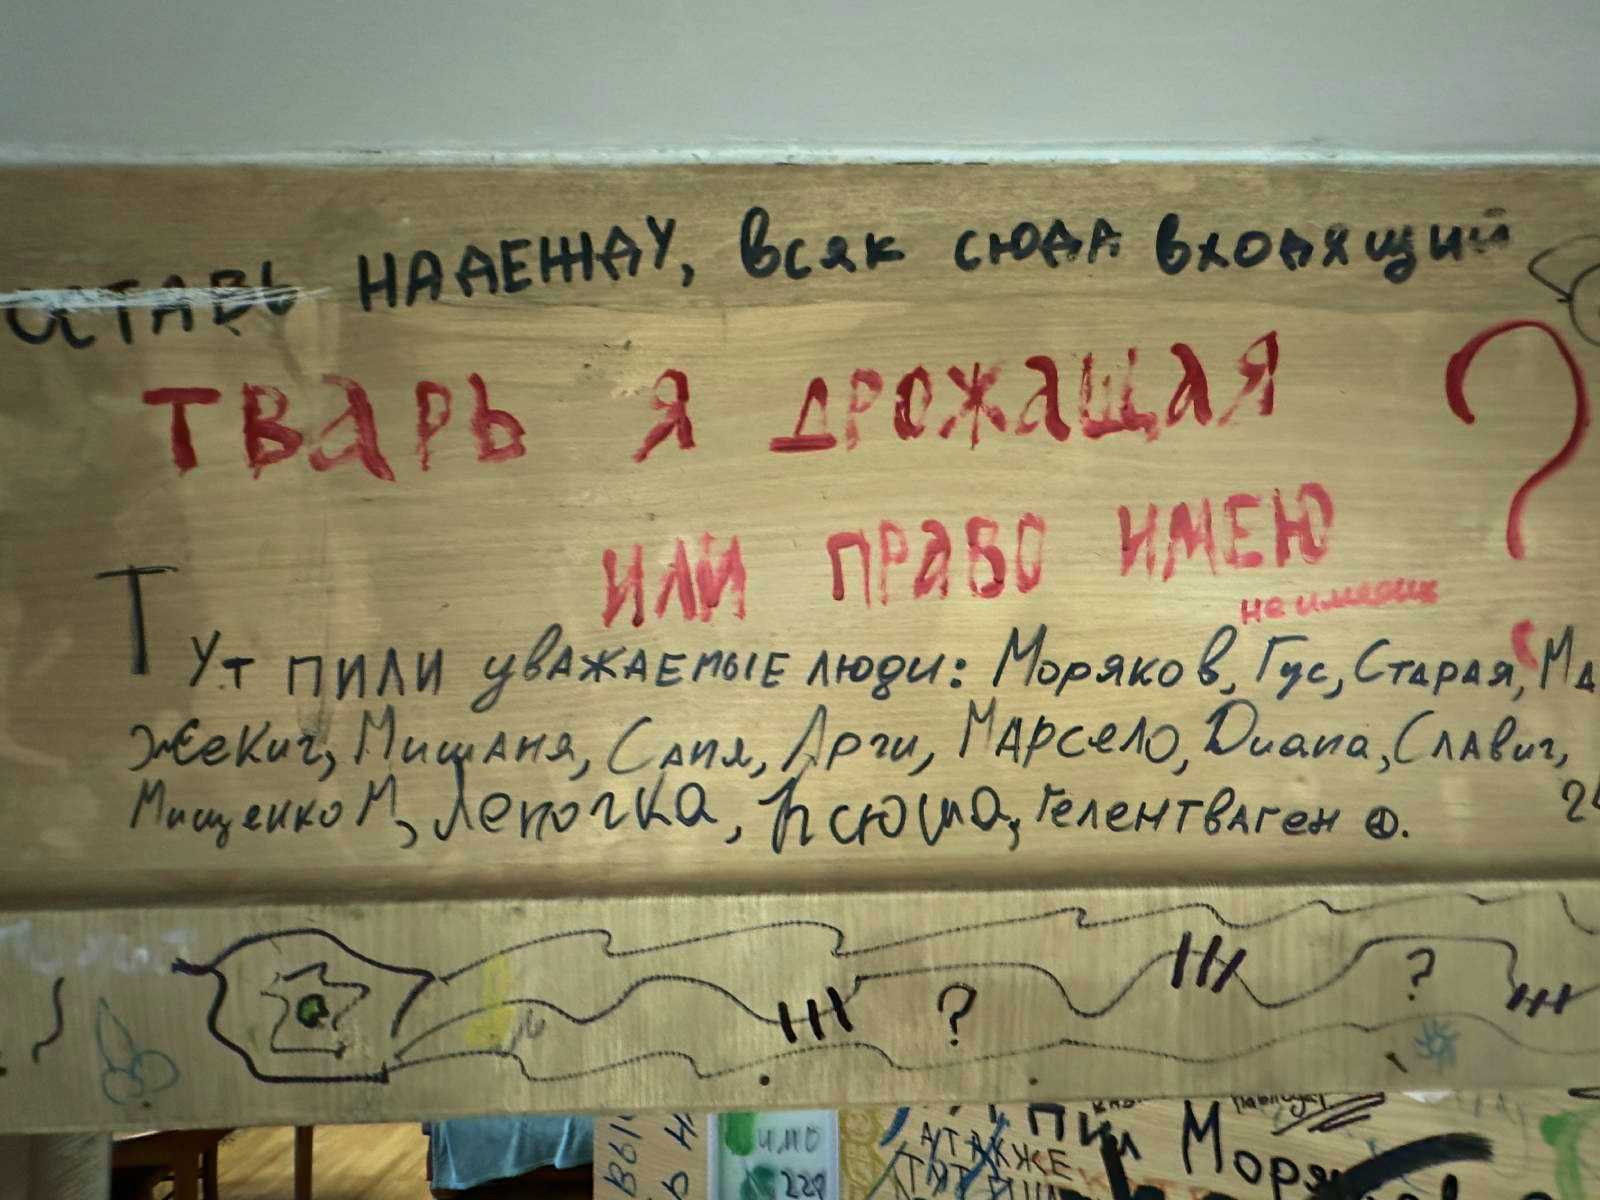 ОСТАВЬ НАДЕЖДУ, Всяк сюда входящий
ТВАРЬ Я ДРОЖАЩАЯ ?
ИЛИ ПРАВО ИМЕЮ
не имеешь
Тут ПИЛИ уважаемые люди: Моряков, Гус, Старая, Ма
Жекич, Мишаня, Саня, Арчи, Марсело, Диана, Славич,
Мищенко М, Леночка, Ксюша, Гелентваген
? ?
имо
228
АТАКЖЕ
ПИЛ Моря